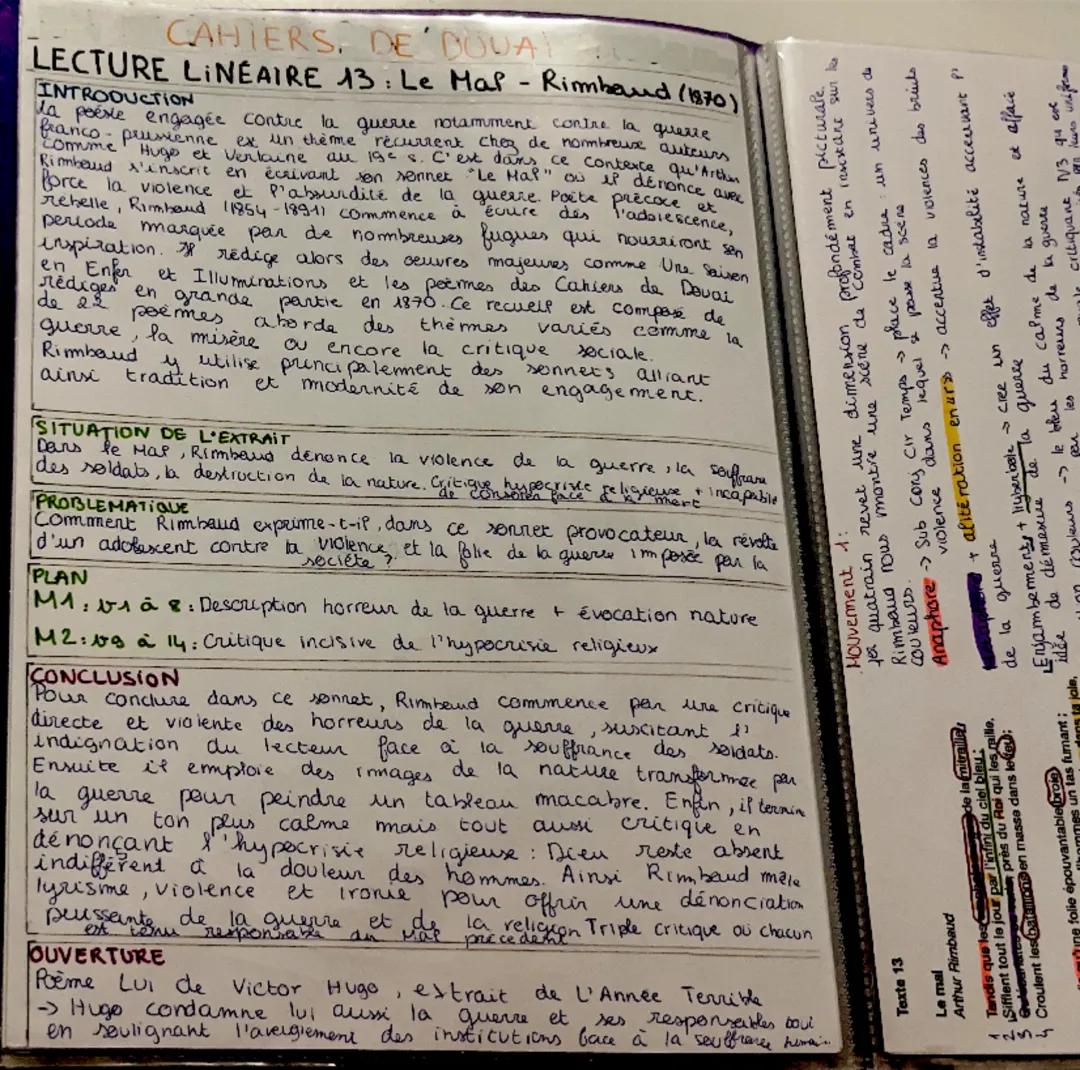 CAHIERS DE DOUAI
LECTURE LINÉAIRE 13 : Le Mal - Rimbaud (1870)
INTRODUCTION
La poésie engagée contre la guerre notamment contre la guerre
franco-prussienne ex un thème récurrent chez de nombreux auteurs
comme Hugo et Verlaine au 19e s. C'est dans ce contexte qu'Arthur
Rimbaud s'inscrit en écrivant son sonnet "Le Mal" où il dénonce avec
force la violence et l'absurdité de la guerre. Poète précoce et
rebelle, Rimbaud (1854-1891) commence à écrire dès l'adolescence,
période marquée par de nombreuses fugues qui nourriront son
inspiration. Il rédige alors des œuvres majeures comme Une Saison
en Enfer et Illuminations et les poèmes des Cahiers de Douai
rédigés en grande partie en 1870. Ce recueil est composé de
de 22 poèmes aborde des thèmes variés comme la
guerre, la misère ou encore la critique sociale.
Rimbaud y utilise principalement des sonnets alliant
ainsi tradition et modernité de son engagement.
SITUATION DE L'EXTRAIT
Dans le Mal, Rimbaud dénonce la violence de la guerre, la souffrance
des soldats, la destruction de la nature. Critique hypocrisie religieuse + incapable
de consoler face à la mort
PROBLEMATIQUE
Comment Rimbaud exprime-t-il, dans ce sonnet provocateur, la révolte
d'un adolescent contre la violence et la folie de la guerre imposée par la
société ?
PLAN
M1 : v1 à 8 : Description horreur de la guerre + évocation nature
M2 : v9 à 14 : Critique incisive de l'hypocrisie religieux
CONCLUSION
Pour conclure dans ce sonnet, Rimbaud commence par une critique
directe et violente des horreurs de la guerre, suscitant l'
indignation du lecteur face à la souffrance des soldats.
Ensuite il emploie des images de la nature transformée par
la guerre pour peindre un tableau macabre. Enfin, il termine
sur un ton plus calme mais tout aussi critique en
dénonçant l'hypocrisie religieuse : Dieu reste absent
indifférent à la douleur des hommes. Ainsi Rimbaud mêle
lyrisme, violence et ironie pour offrir une dénonciation
puissante de la guerre et de la religion Triple critique où chacun
est tenu responsable du Mal précédent
OUVERTURE
Poème Lui de Victor Hugo, extrait de L'Année Terrible
-> Hugo condamne lui aussi la guerre et ses responsables
en soulignant l'aveuglement des institutions face à la souffrance
MOUVEMENT 1 :
1er quatrain revet une dimension profondément picturale.
Rimbaud nous montre une scène de combat en insistant sur les
couleurs.
Anaphore -> Sub Conj Cir Temps -> place le cadre : un univers de
violence dans lequel se passe la scène
+ allitération en « r » -> accentue la violences des bruits
de la guerre
Enjambements + Hyperbole -> crée un effet d'instabilité accentuant
idée de démesure de la guerre
-> le bleu du calme de la nature et effacé
par les horreurs de la guerre
Texte 13
Le mal
Arthur Rimbaud
1 Tandis que les de la mitraille
2 Sifflent tout le jour par l'infini du ciel bleu ;
3 près du Roi qui les raille,
4 Croulent les bataillons en masse dans le feu ;
qu'une folie épouvantable broie
d'hommes un tas fumant ;
dans ta joie,